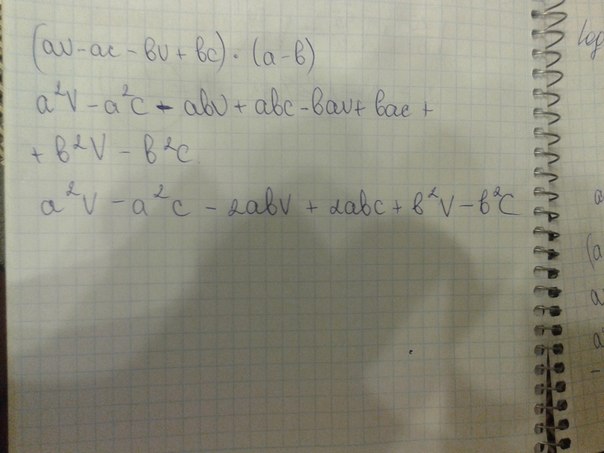 (av-ac-bv+bc)·(a-b)
a²V-a²c-abv+abc-bav+bac+
+b²V-b²c
a²V-a²c-2abV+2abc+b²V-b²C
log
a
(a
a
a
-